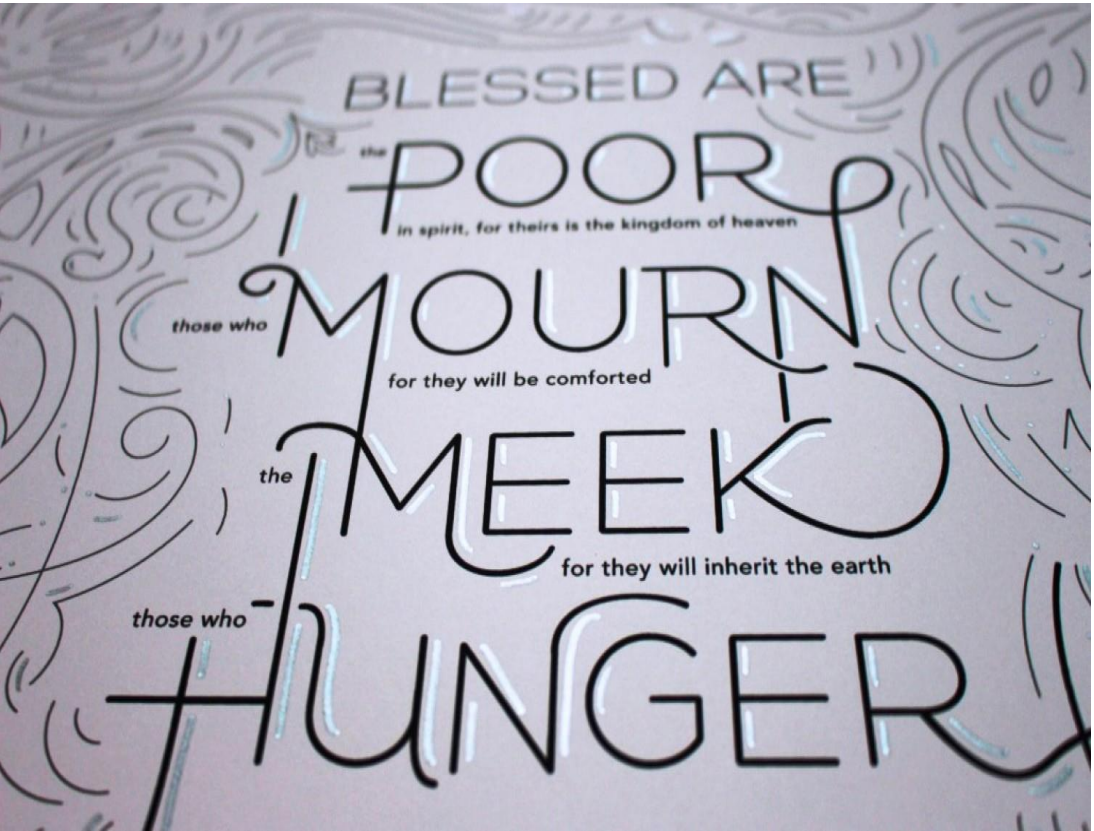 BLESSED ARE
the POOR
in spirit, for theirs is the kingdom of heaven
those who MOURN
for they will be comforted
the MEEK
for they will inherit the earth
those who HUNGER